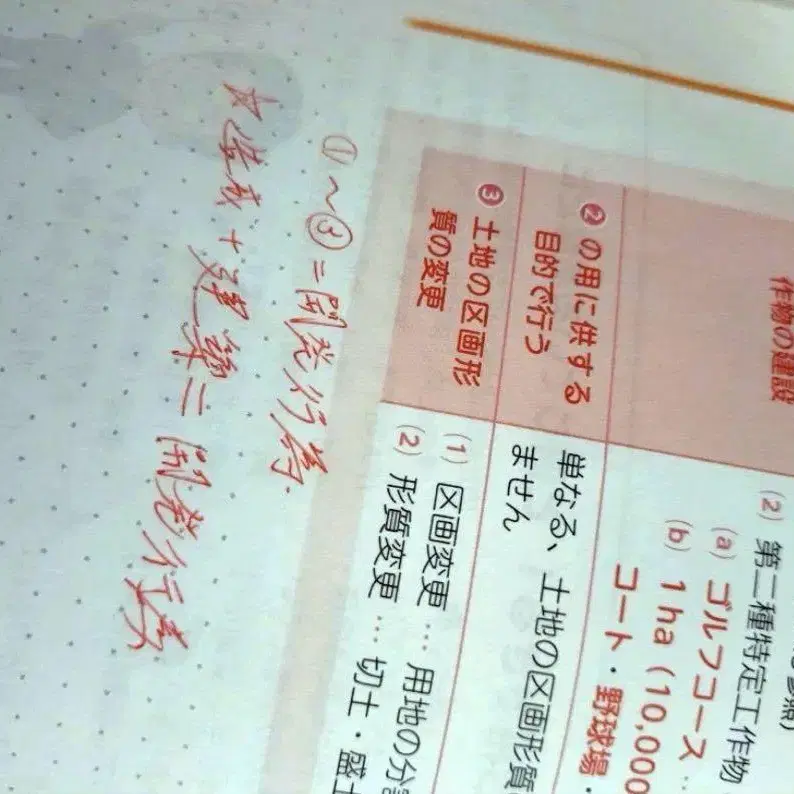 作物の建設
❷ の用に供する
目的で行う
❸ 土地の区画形
質の変更
(2) 第二種特定工作物
(a) ゴルフコース
(b) 1 ha（10,000
コート・野球場・
単なる、土地の区画形質
ません
(1) 区画変更 … 用地の分
(2) 形質変更 … 切土・盛土
①～③＝開発行為
☆造成＋建築＝開発行為